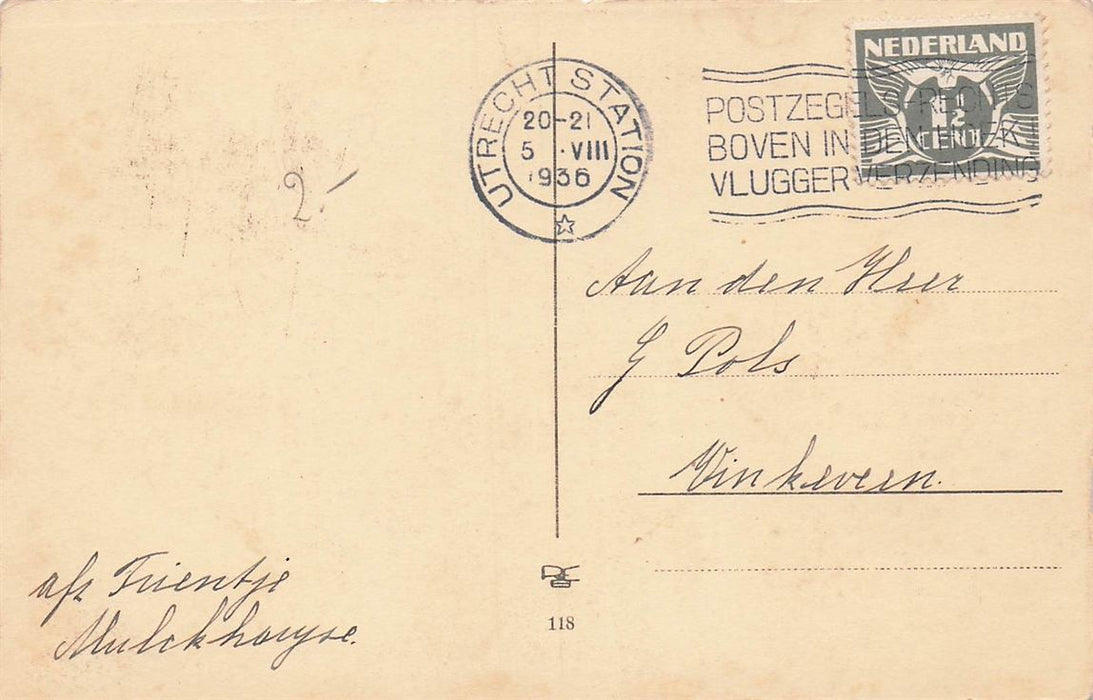 UTRECHT STATION
20-21
5 .VIII
1936
NEDERLAND
1½
CENT
POSTZEGELS RECHTS
BOVEN IN DEN HOEK
VLUGGER VERZENDING
2.-
Aan den Heer
G Pols
Vinkeveen.
afz Trientje
Mulckhuyse.
118